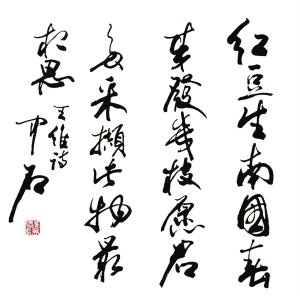 红豆生南國春
来發幾枝愿君
多采擷此物最
相思
王维诗
中石